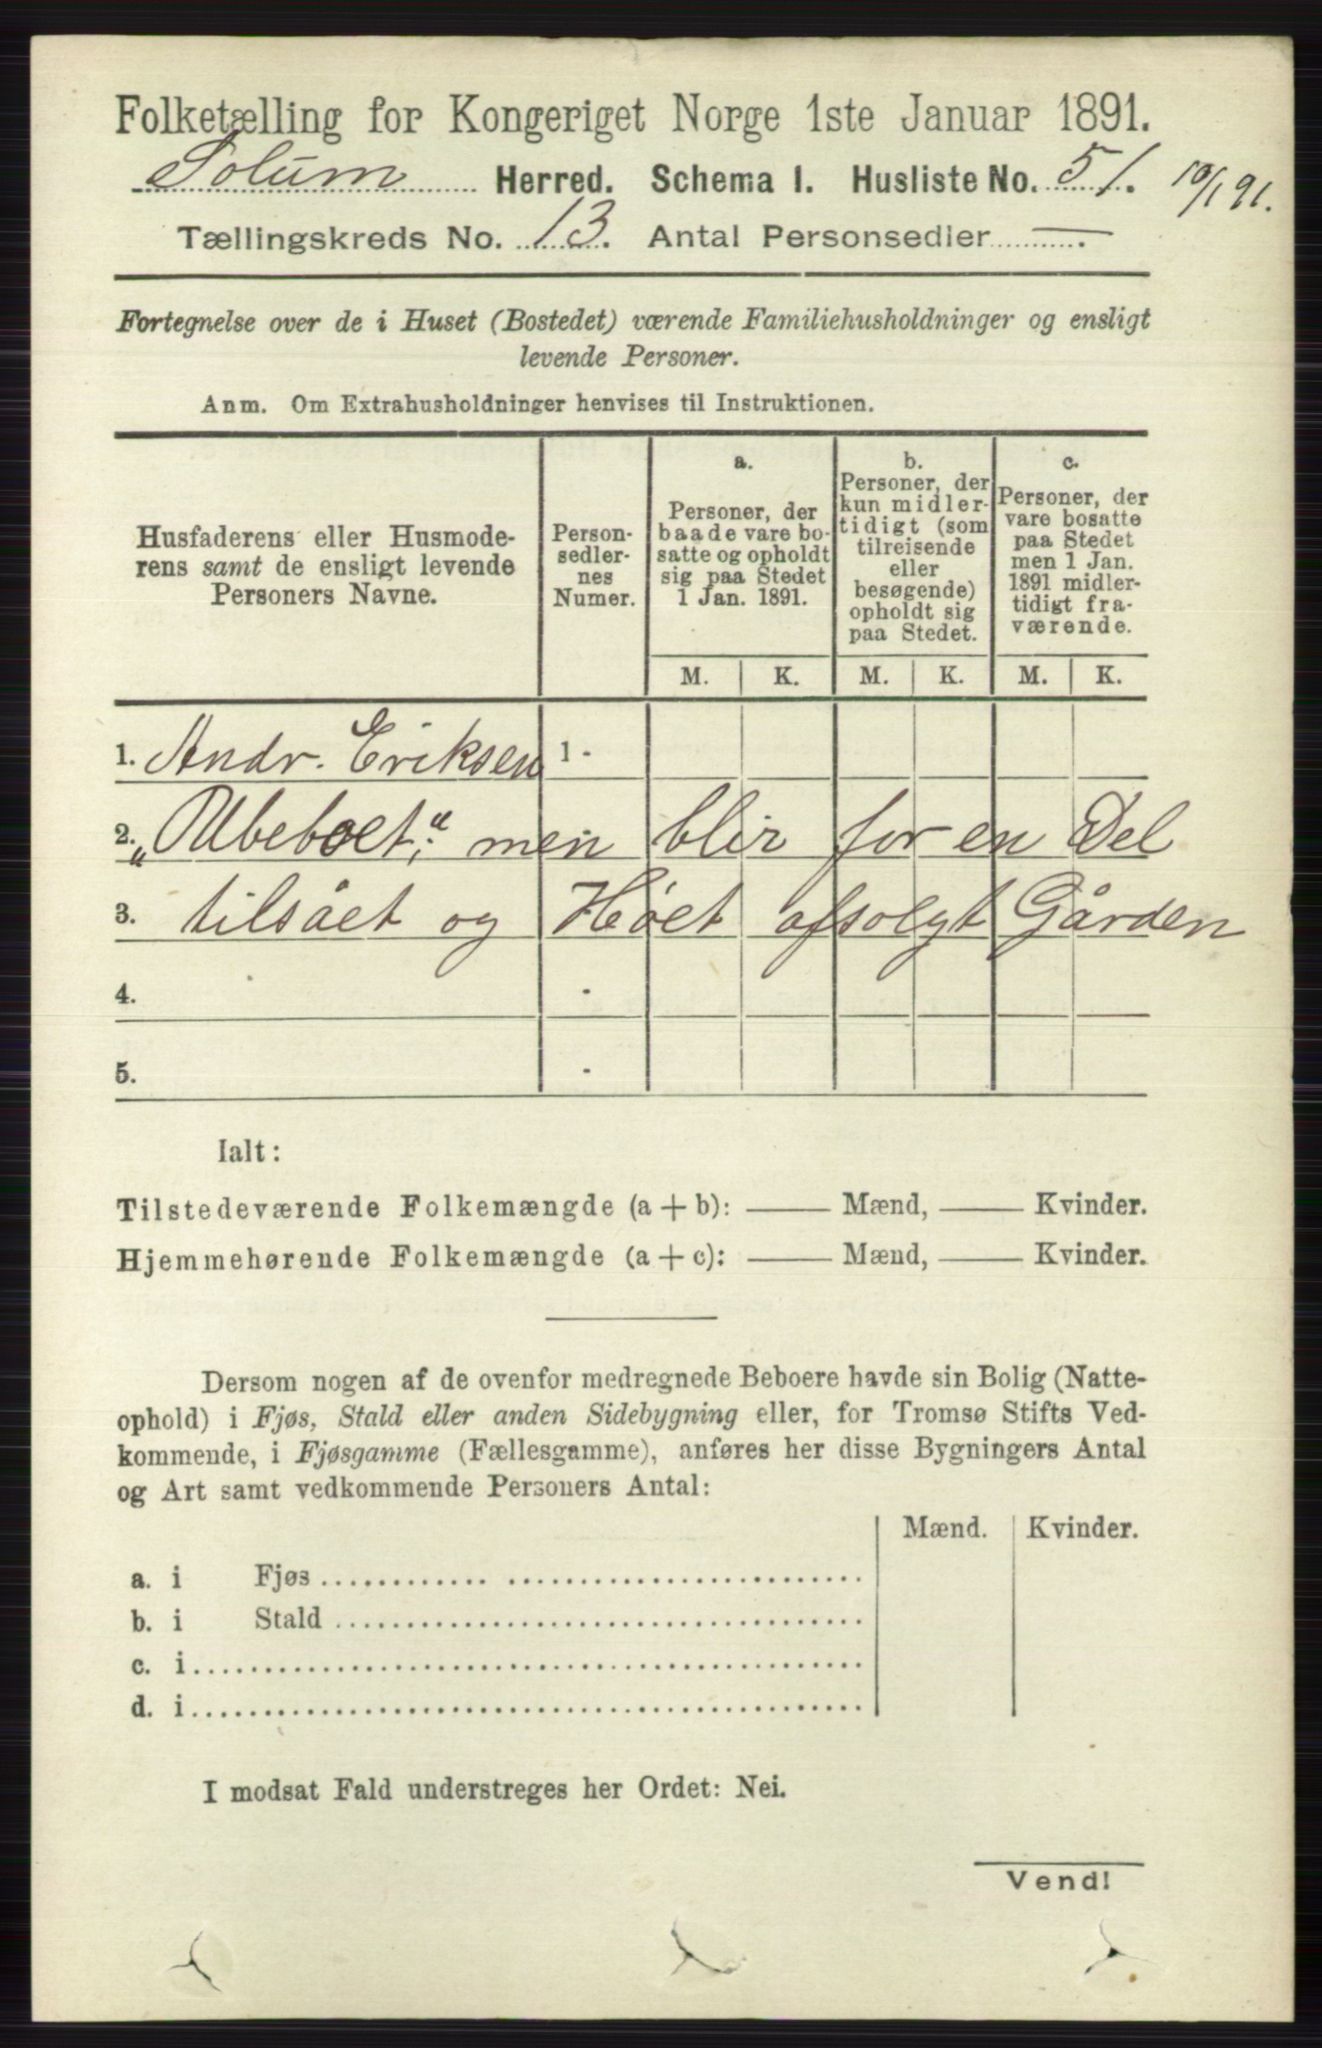 Folketælling for Kongeriget Norge 1ste Januar 1891.
Solum Herred. Schema I. Husliste No. 51. 10/1 91.
Tællingskreds No. 13. Antal Personsedler — .
Fortegnelse over de i Huset (Bostedet) værende Familiehusholdninger og ensligt
levende Personer.
Anm. Om Extrahusholdninger henvises til Instruktionen.
Husfaderens eller Husmode-
rens samt de ensligt levende
Personers Navne.
Person-
sedler-
nes
Numer.
a.
Personer, der
baade vare bo-
satte og opholdt
sig paa Stedet
1 Jan. 1891.
b.
Personer, der
kun midler-
tidigt (som
tilreisende
eller
besøgende)
opholdt sig
paa Stedet.
c.
Personer, der
vare bosatte
paa Stedet
men 1 Jan.
1891 midler-
tidigt fra-
værende.
M. K. M. K. M. K.
1. Andr. Eriksen 1 -
2. „Ubeboet;" men blir for en Del
3. tilsået og Høet afsolgt Gården
4. -
5. -
Ialt:
Tilstedeværende Folkemængde (a + b): —— Mænd, —— Kvinder.
Hjemmehørende Folkemængde (a + c): —— Mænd, —— Kvinder.
Dersom nogen af de ovenfor medregnede Beboere havde sin Bolig (Natte-
ophold) i Fjøs, Stald eller anden Sidebygning eller, for Tromsø Stifts Ved-
kommende, i Fjøsgamme (Fællesgamme), anføres her disse Bygningers Antal
og Art samt vedkommende Personers Antal:
Mænd. Kvinder.
a. i Fjøs
b. i Stald
c. i
d. i
I modsat Fald understreges her Ordet: Nei.
Vend!